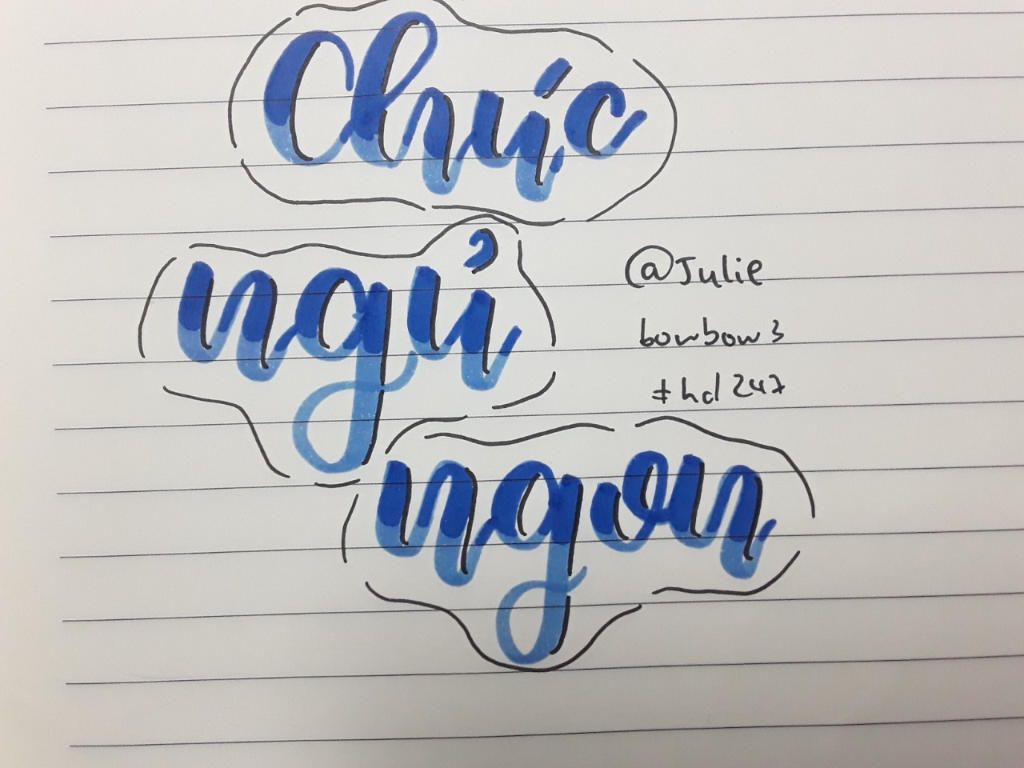 Chúc
ngủ
@Julie
bowbow3
#hd247
ngon